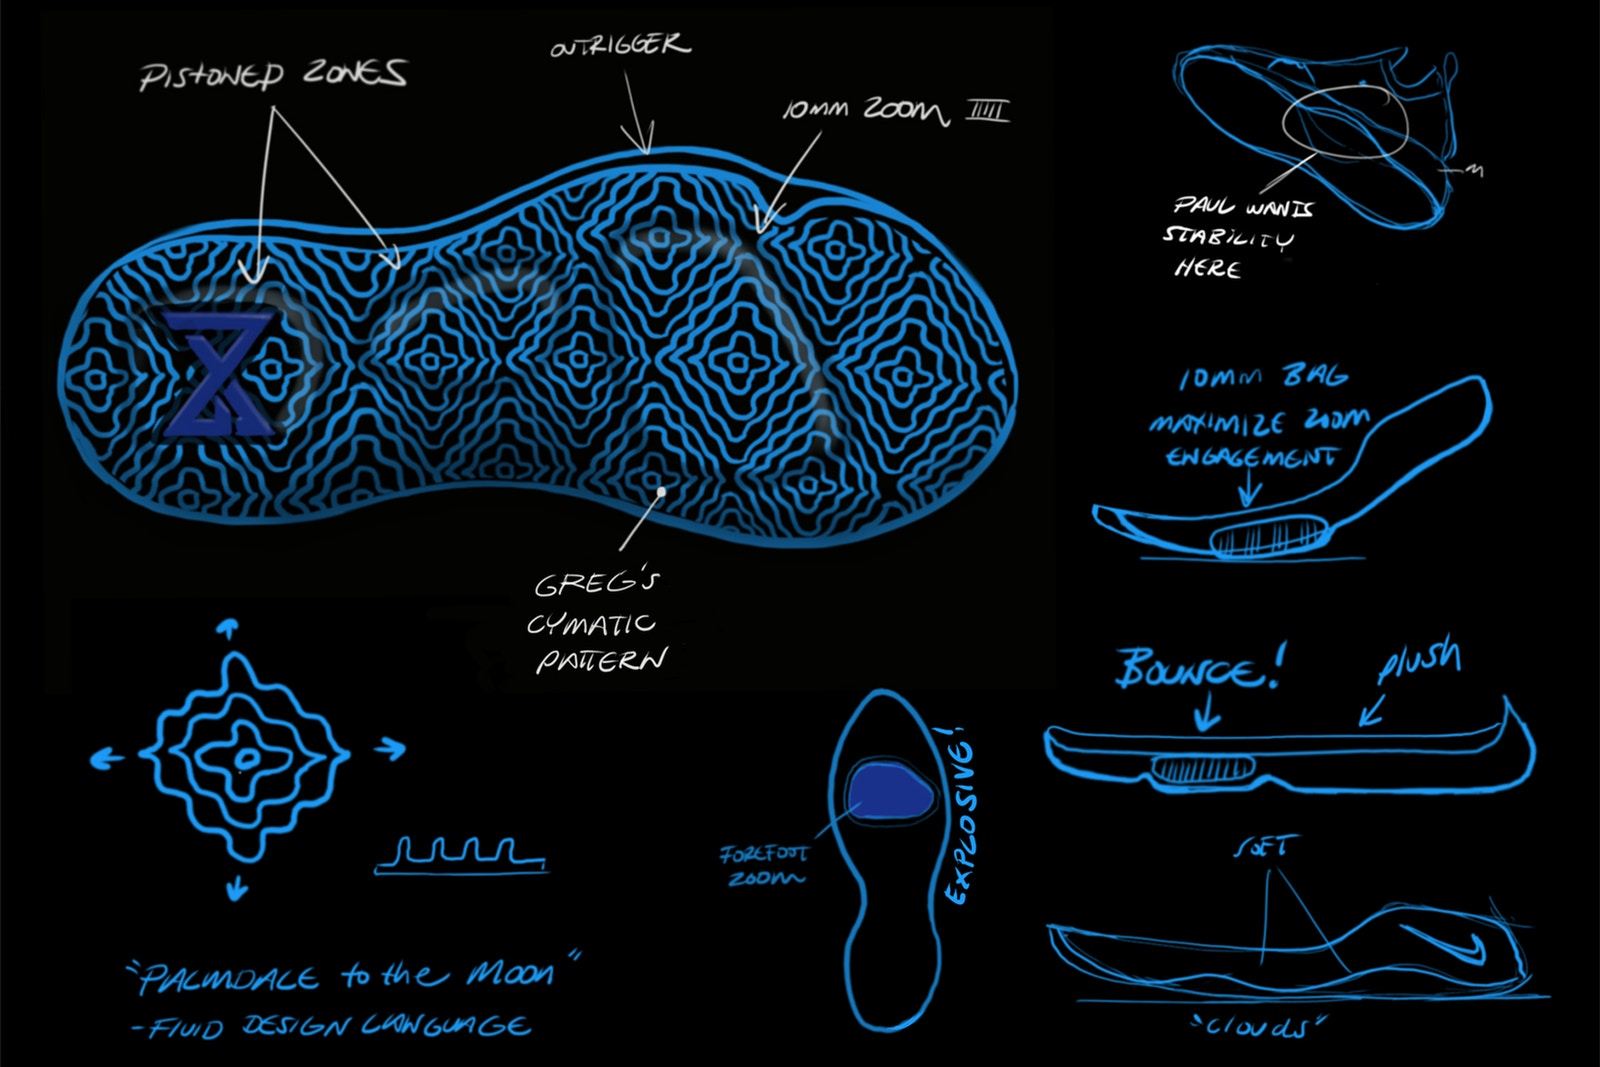 PISTONED ZONES
OUTRIGGER
10mm ZOOM
PAUL WANTS
STABILITY
HERE
10mm BAG
MAXIMIZE ZOOM
ENGAGEMENT
GREG'S
CYMATIC
PATTERN
BOUNCE!
plush
EXPLOSIVE!
FOREFOOT
ZOOM
SOFT
"PALMDALE to the Moon"
- FLUID DESIGN LANGUAGE
"Clouds"